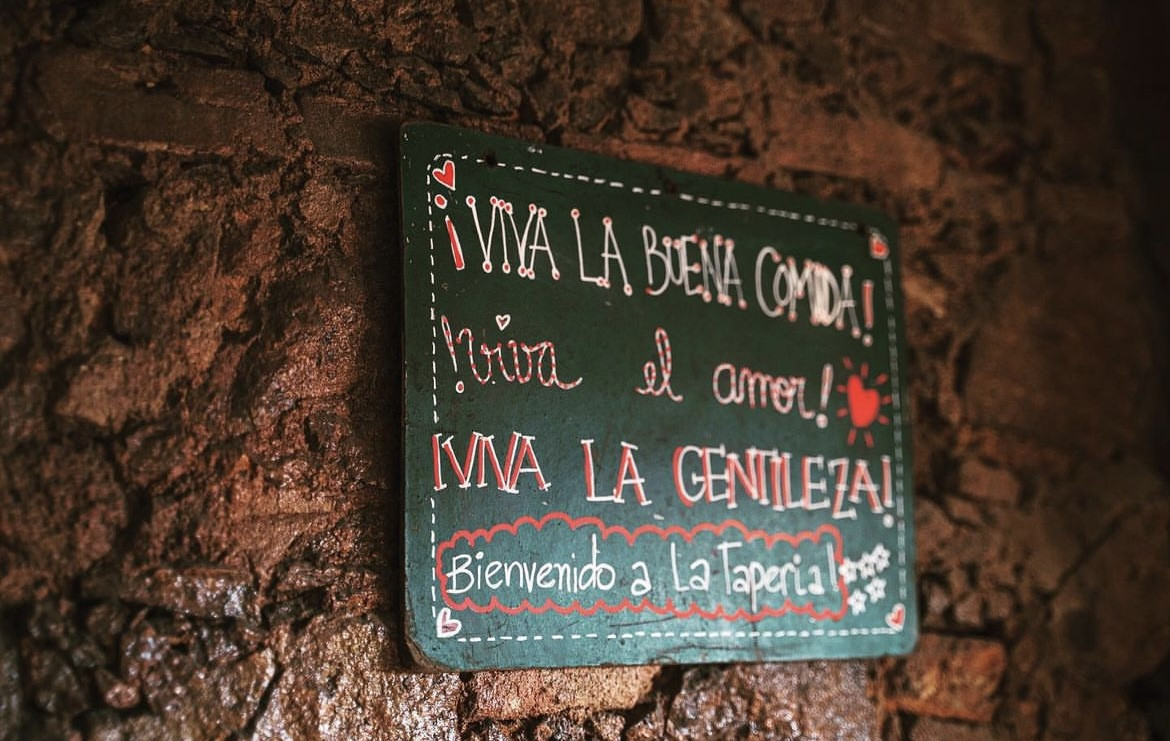 ¡VIVA LA BUENA COMIDA!
!viva el amor!
¡VIVA LA GENTILEZA!
Bienvenido a La Taperia!